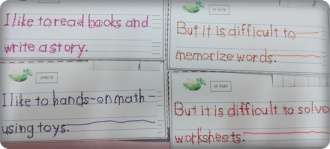 I like to read books and
write a story.
But it is difficult to
memorize words.
I like to hands-on math
using toys.
But it is difficult to solve
worksheets.